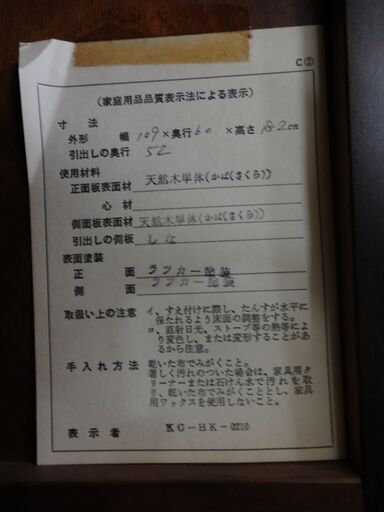 C③
(家庭用品品質表示法による表示)
寸法
外形 幅109×奥行60×高さ182cm
引出しの奥行 52
使用材料
正面板表面材 天然木単体(かば(さくら))
心材
側面板表面材 天然木単体(かば(さくら))
引出しの側板 しな
表面塗装
正面 ラッカー塗装
側面 ラッカー塗装
取扱い上の注意 イ、すえ付けに際し、たんすが水平に
保たれるよう床面の調整をする。
ロ、直射日光、ストーブ等の熱等によ
り変色し、または変形することがあ
るから注意。
手入れ方法 乾いた布でみがくこと。
著しく汚れのついた場合は、家具用ク
リーナーまたは石けん水で汚れを取
り、乾いた布でみがくこととし、家具
用ワックスを使用しないこと。
表示者 KG-HK-0210